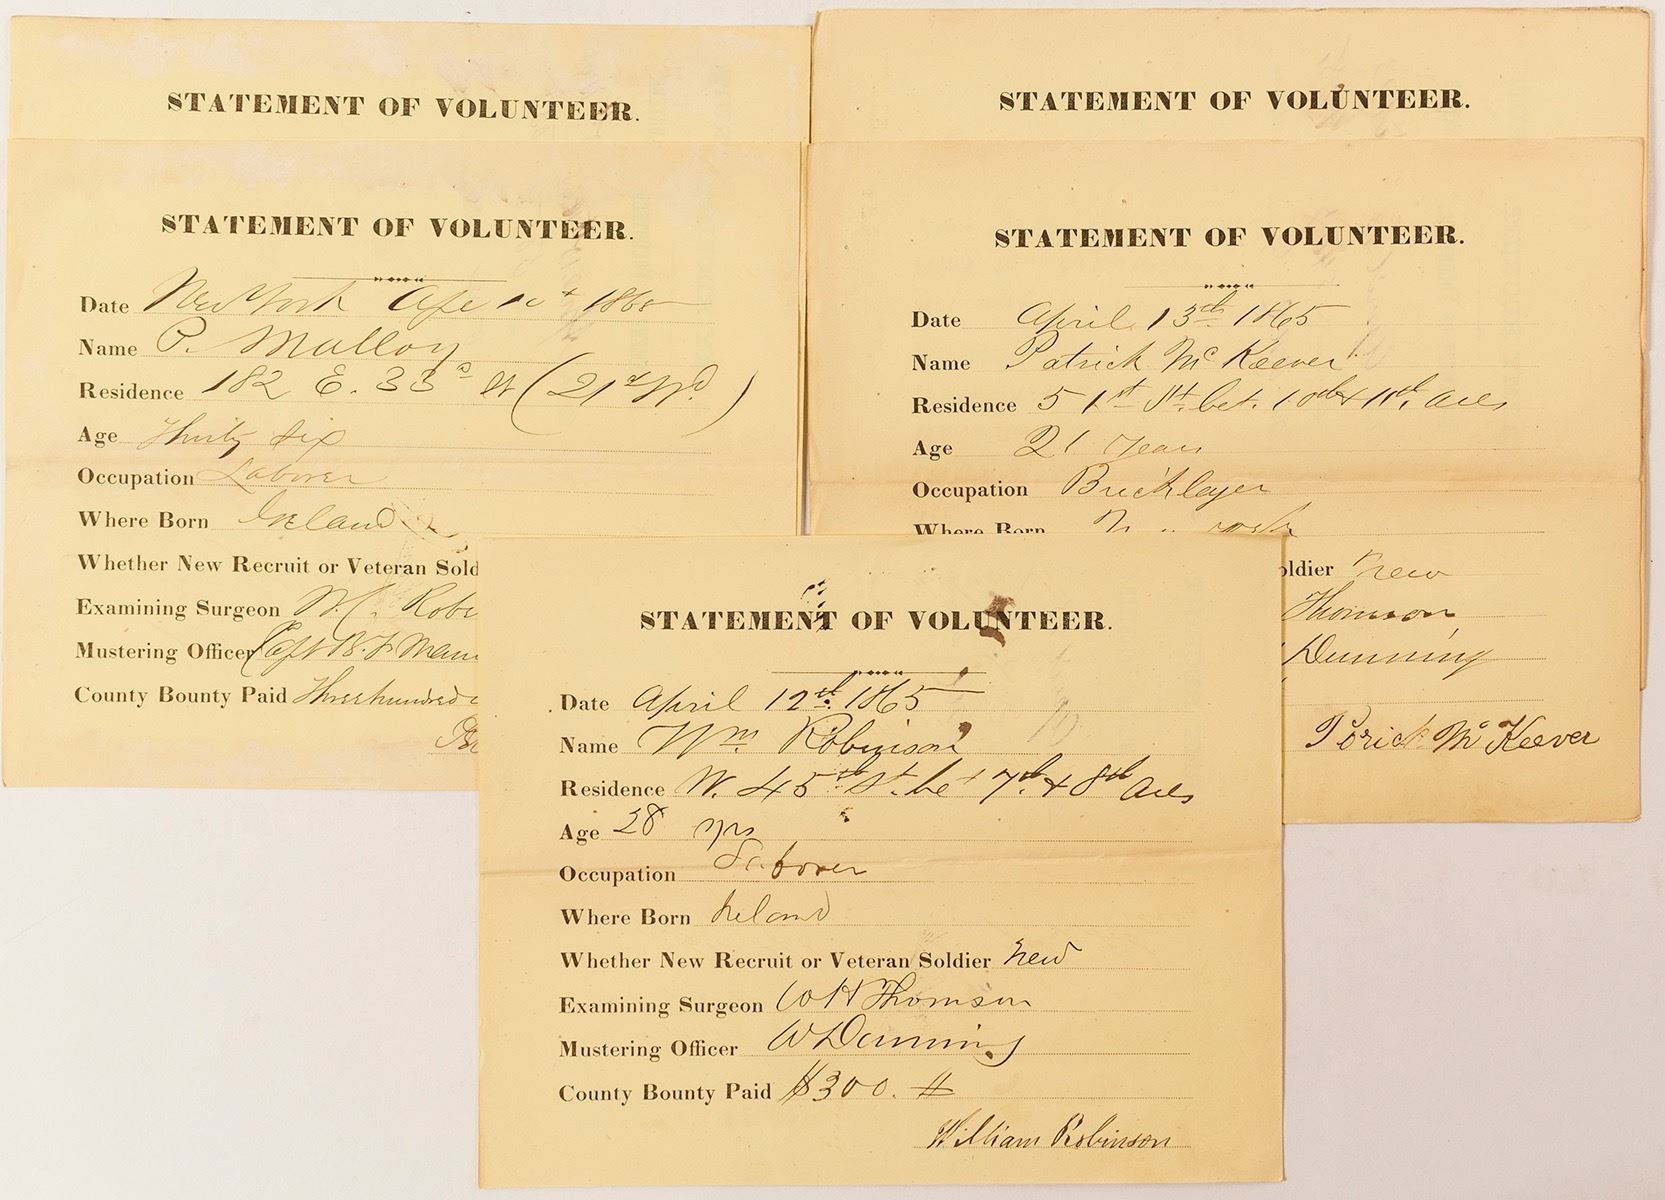 STATEMENT OF VOLUNTEER.
STATEMENT OF VOLUNTEER.
Date New York Apl 10th 1865
Name P. Mulloy
Residence 182 E. 33d St (21st Wd.)
Age Thirty Six
Occupation Laborer
Where Born Ireland
Whether New Recruit or Veteran Sold
Examining Surgeon
Mustering Officer Capt B. F Mann
County Bounty Paid Three hundred
STATEMENT OF VOLUNTEER.
STATEMENT OF VOLUNTEER.
Date April 13th 1865
Name Patrick McKeever
Residence 51st St. bet. 10th & 11th Aves
Age 21 years
Occupation Bricklayer
Where Born
oldier new
Thomson
Dunning
McKeever
STATEMENT OF VOLUNTEER.
Date April 12th 1865
Name Wm. Robinson
Residence W. 45th St. bet 7th & 8th Aves
Age 28 yrs
Occupation Laborer
Where Born Ireland
Whether New Recruit or Veteran Soldier new
Examining Surgeon W H Thomson
Mustering Officer W Dunning
County Bounty Paid $300.
William Robinson